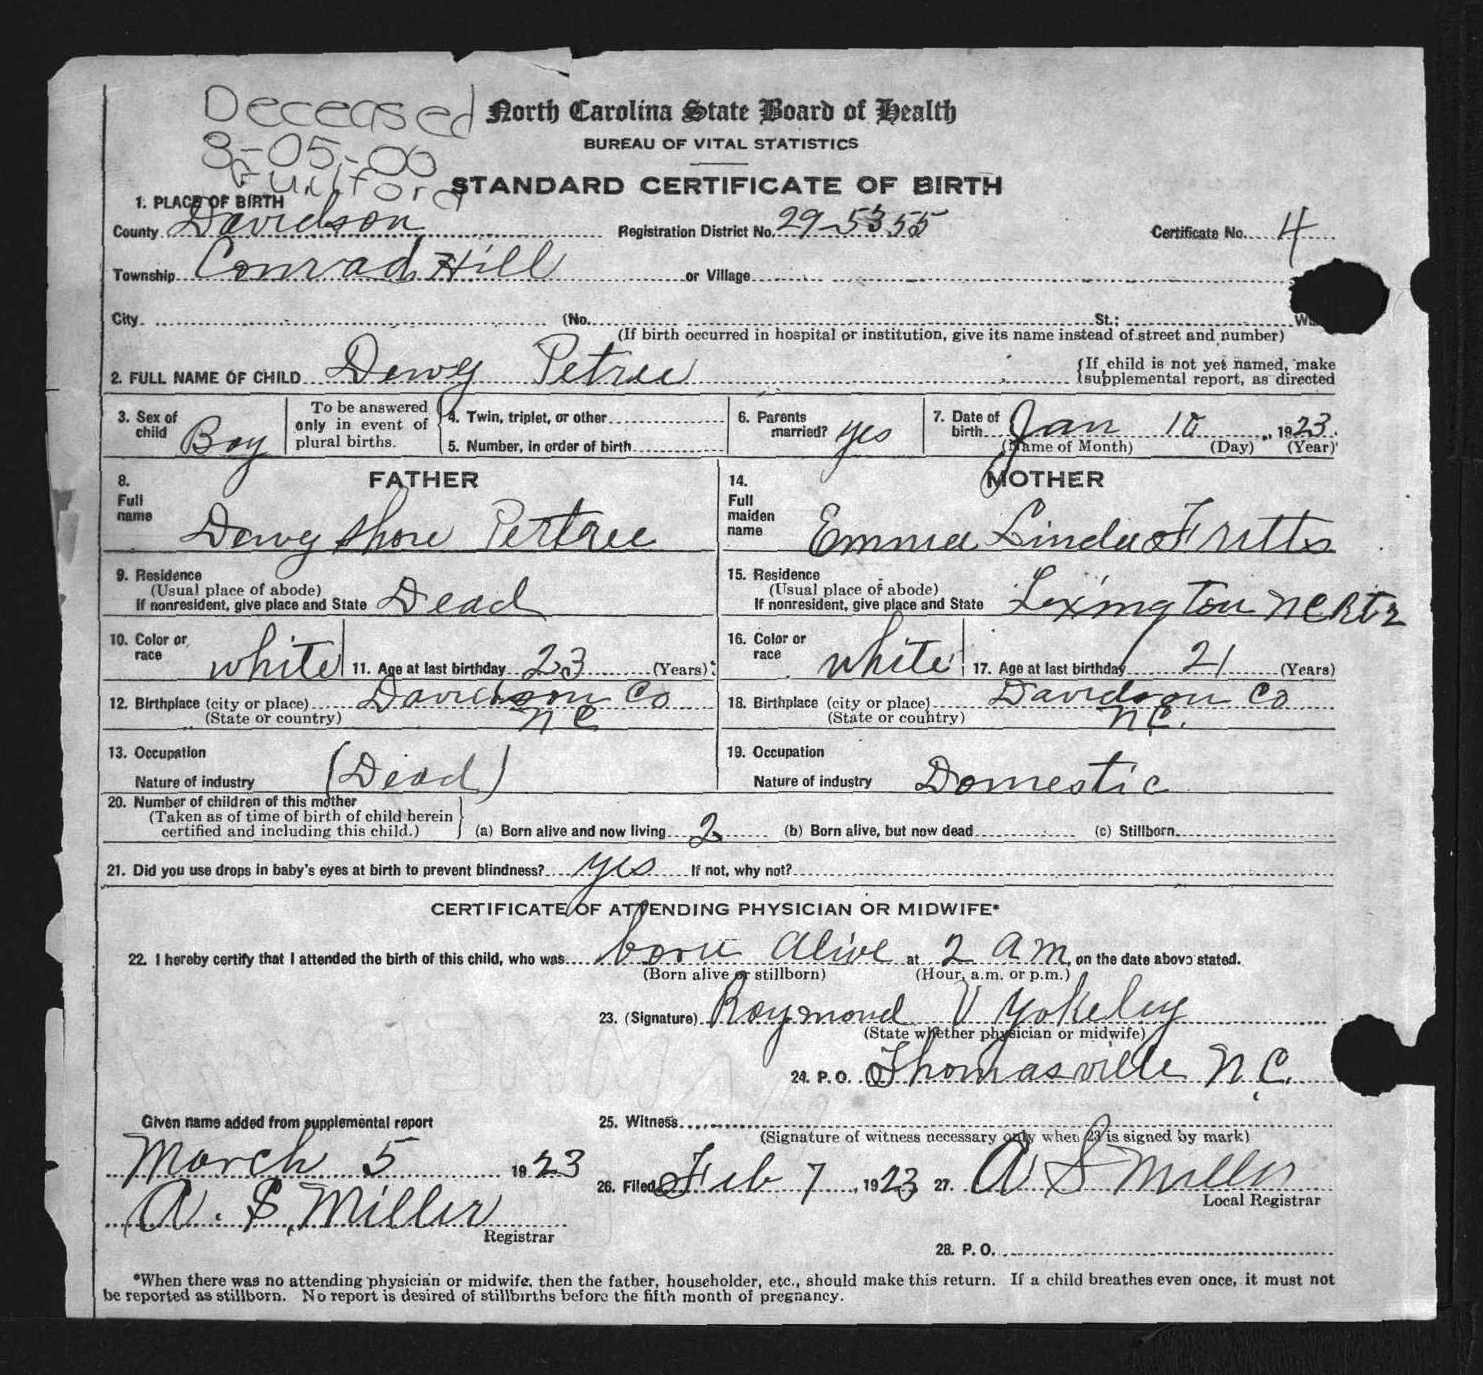 Deceased
3-05-00
Guilford
North Carolina State Board of Health
BUREAU OF VITAL STATISTICS
STANDARD CERTIFICATE OF BIRTH
1. PLACE OF BIRTH
County Davidson Registration District No. 29-5355 Certificate No. 4
Township Conrad Hill or Village
City (No. St.;
(If birth occurred in hospital or institution, give its name instead of street and number)
2. FULL NAME OF CHILD Dewey Petree {If child is not yet named, make supplemental report, as directed
3. Sex of child Boy
To be answered only in event of plural births.
4. Twin, triplet, or other
5. Number, in order of birth
6. Parents married? yes
7. Date of birth Jan 10, 1923.
(Name of Month) (Day) (Year)
FATHER
8. Full name Dewey Shore Pertree
9. Residence
(Usual place of abode)
If nonresident, give place and State Dead
10. Color or race white 11. Age at last birthday 23 (Years)
12. Birthplace (city or place) Davidson Co
(State or country) N C
13. Occupation
Nature of industry (Dead)
MOTHER
14. Full maiden name Emma Linda Fritts
15. Residence
(Usual place of abode)
If nonresident, give place and State Lexington N C Rt 2
16. Color or race white 17. Age at last birthday 21 (Years)
18. Birthplace (city or place) Davidson Co
(State or country) N C.
19. Occupation
Nature of industry Domestic
20. Number of children of this mother
(Taken as of time of birth of child herein certified and including this child.) } (a) Born alive and now living 2 (b) Born alive, but now dead (c) Stillborn
21. Did you use drops in baby's eyes at birth to prevent blindness? yes If not, why not?
CERTIFICATE OF ATTENDING PHYSICIAN OR MIDWIFE*
22. I hereby certify that I attended the birth of this child, who was born alive at 2 a m, on the date above stated.
(Born alive or stillborn) (Hour, a.m. or p.m.)
23. (Signature) Raymond V Yokeley
(State whether physician or midwife)
24. P. O. Thomasville N. C.
Given name added from supplemental report
March 5 1923
A. S. Miller
Registrar
25. Witness
(Signature of witness necessary only when 23 is signed by mark)
26. Filed Feb 7, 1923 27. A S Miller
Local Registrar
28. P. O.
*When there was no attending physician or midwife, then the father, householder, etc., should make this return. If a child breathes even once, it must not
be reported as stillborn. No report is desired of stillbirths before the fifth month of pregnancy.